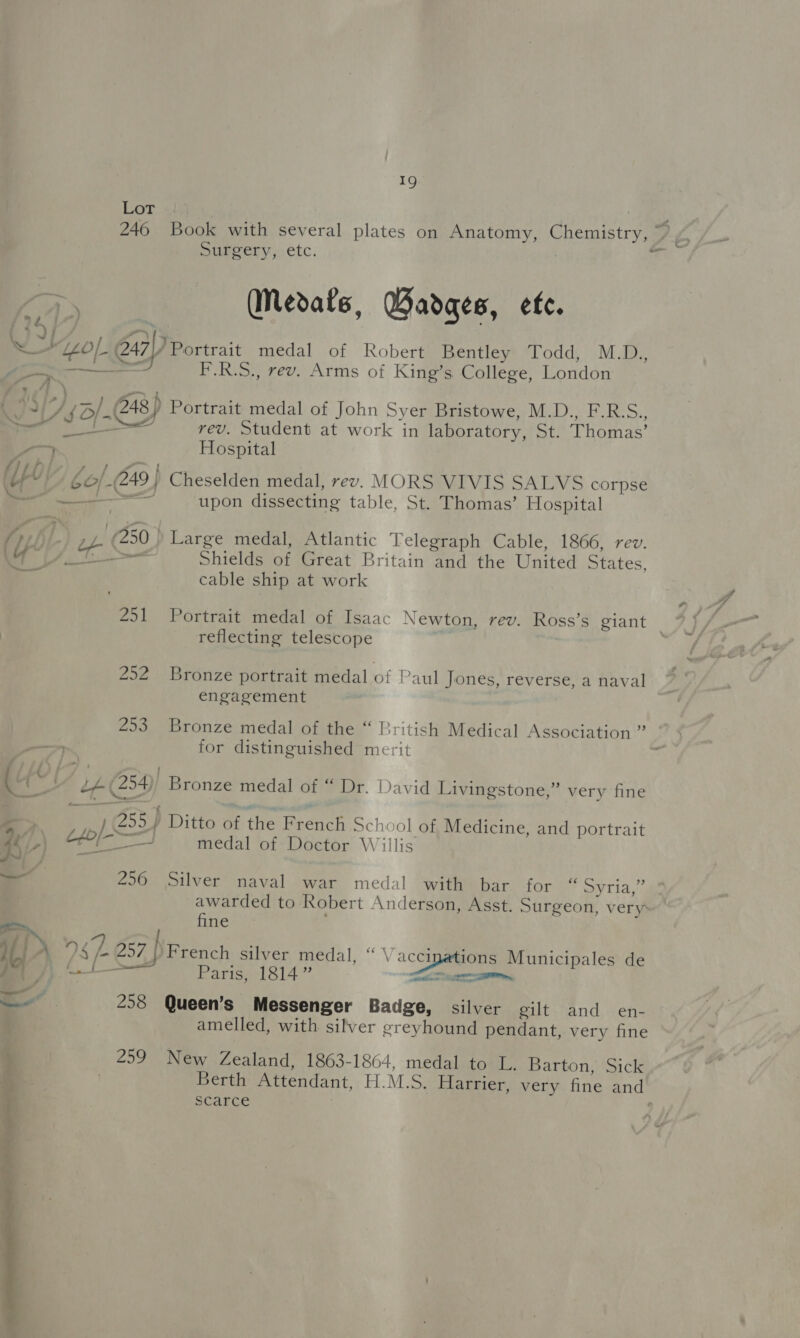 19
Lot
246 Book with several plates on Anatomy, Chemistry,
Surgery, etc.
Medals, Badges, etc.
40/- 247 Portrait medal of Robert Bentley Todd, M.D.,
F.R.S., rev. Arms of King's College, London
45/- 248 Portrait medal of John Syer Bristowe, M.D., F.R.S.,
rev. Student at work in laboratory, St. Thomas'
Hospital
60/- 249 Cheselden medal, rev. MORS VIVIS SALVS corpse
upon dissecting table, St. Thomas' Hospital
250 Large medal, Atlantic Telegraph Cable, 1866, rev.
Shields of Great Britain and the United States,
cable ship at work
251 Portrait medal of Isaac Newton, rev. Ross's giant
reflecting telescope
252 Bronze portrait medal of Paul Jones, reverse, a naval
engagement
253 Bronze medal of the “ British Medical Association ”
for distinguished merit
254 Bronze medal of “ Dr. David Livingstone,” very fine
255 Ditto of the French School of Medicine, and portrait
medal of Doctor Willis
256 Silver naval war medal with bar for “ Syria,”
awarded to Robert Anderson, Asst. Surgeon, very
fine
257 French silver medal, “ Vaccinations Municipales de
Paris, 1814 ”
258 Queen's Messenger Badge, silver gilt and en-
amelled, with silver greyhound pendant, very fine
259 New Zealand, 1863-1864, medal to L. Barton, Sick
Berth Attendant, H.M.S. Harrier, very fine and
scarce